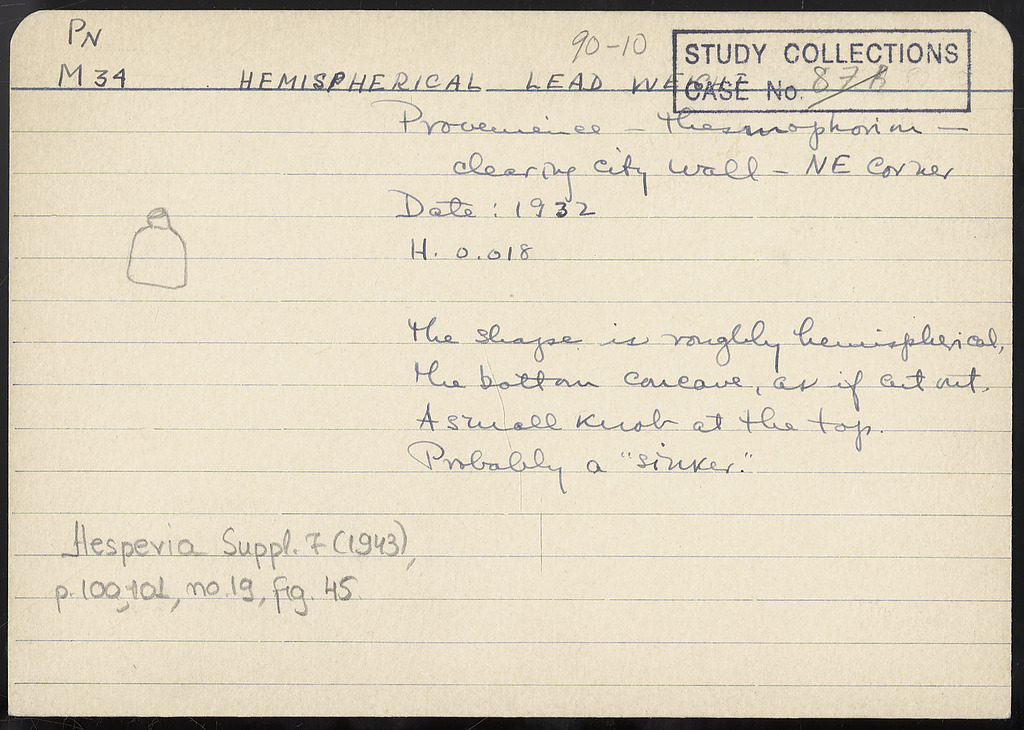 PN
M 34
90-10
STUDY COLLECTIONS
CASE No. 87A
HEMISPHERICAL LEAD WEIGHT
Provenience – Thesmophorion –
clearing city wall – NE Corner
Date : 1932
H. 0.018
The shape is roughly hemispherical,
the bottom concave, as if cut out.
A small knob at the top.
Probably a "sinker."
Hesperia Suppl. 7 (1943),
p. 100, 101, no. 19, fig. 45